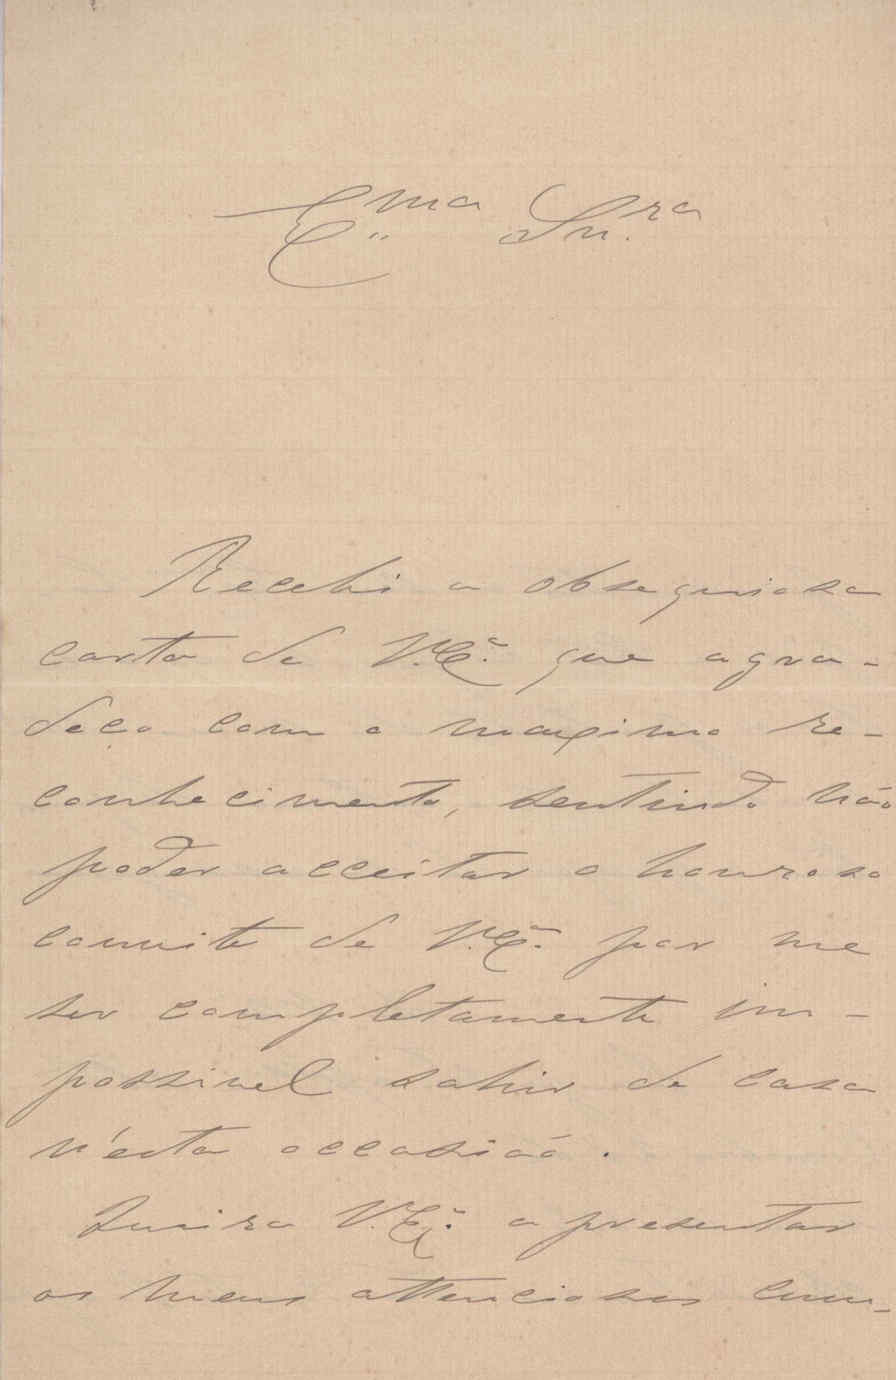 E.ma Snr.ra
Recebi a obsequiosa
carta de V.Ex.ª que agra-
deço com o maximo re-
conhecimento, sentindo não
poder acceitar o honroso
convite de V.Ex.ª por me
ser completamente im-
possivel sahir de casa
n'esta occasião.
Queira V.Ex.ª apresentar
os meus attenciosos cum-